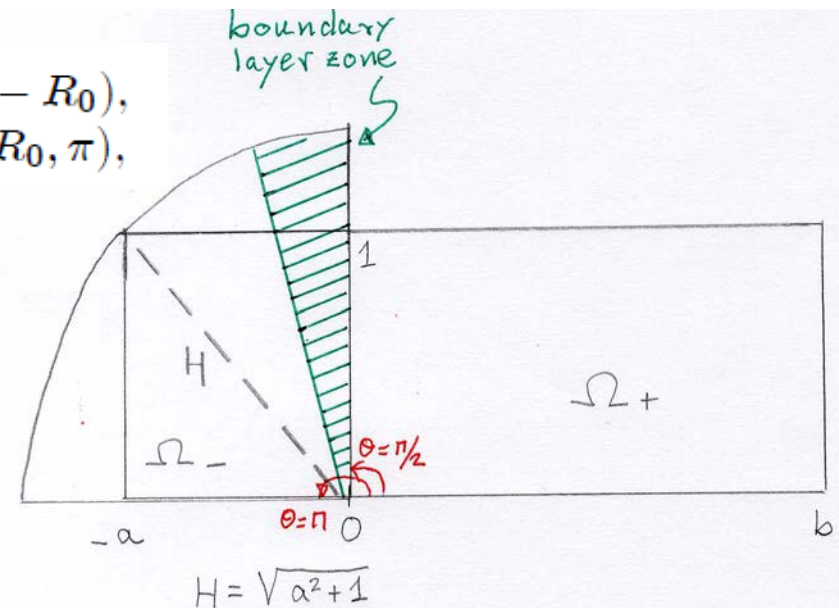 boundary
layer zone
− R₀),
R₀, π),
1
H
Ω₊
Ω₋
θ=π/2
θ=π
-a
0
b
H = √a²+1